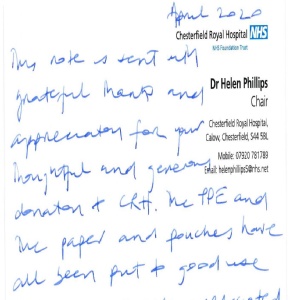 April 2020
Chesterfield Royal Hospital NHS
NHS Foundation Trust
This note is sent with
grateful thanks and
appreciation for your
thoughtful and generous
donation to CRH. The PPE and
the paper and pouches have
all been put to good use
Dr Helen Phillips
Chair
Chesterfield Royal Hospital,
Calow, Chesterfield, S44 5BL
Mobile: 07920 781789
Email: helenphillips5@nhs.net